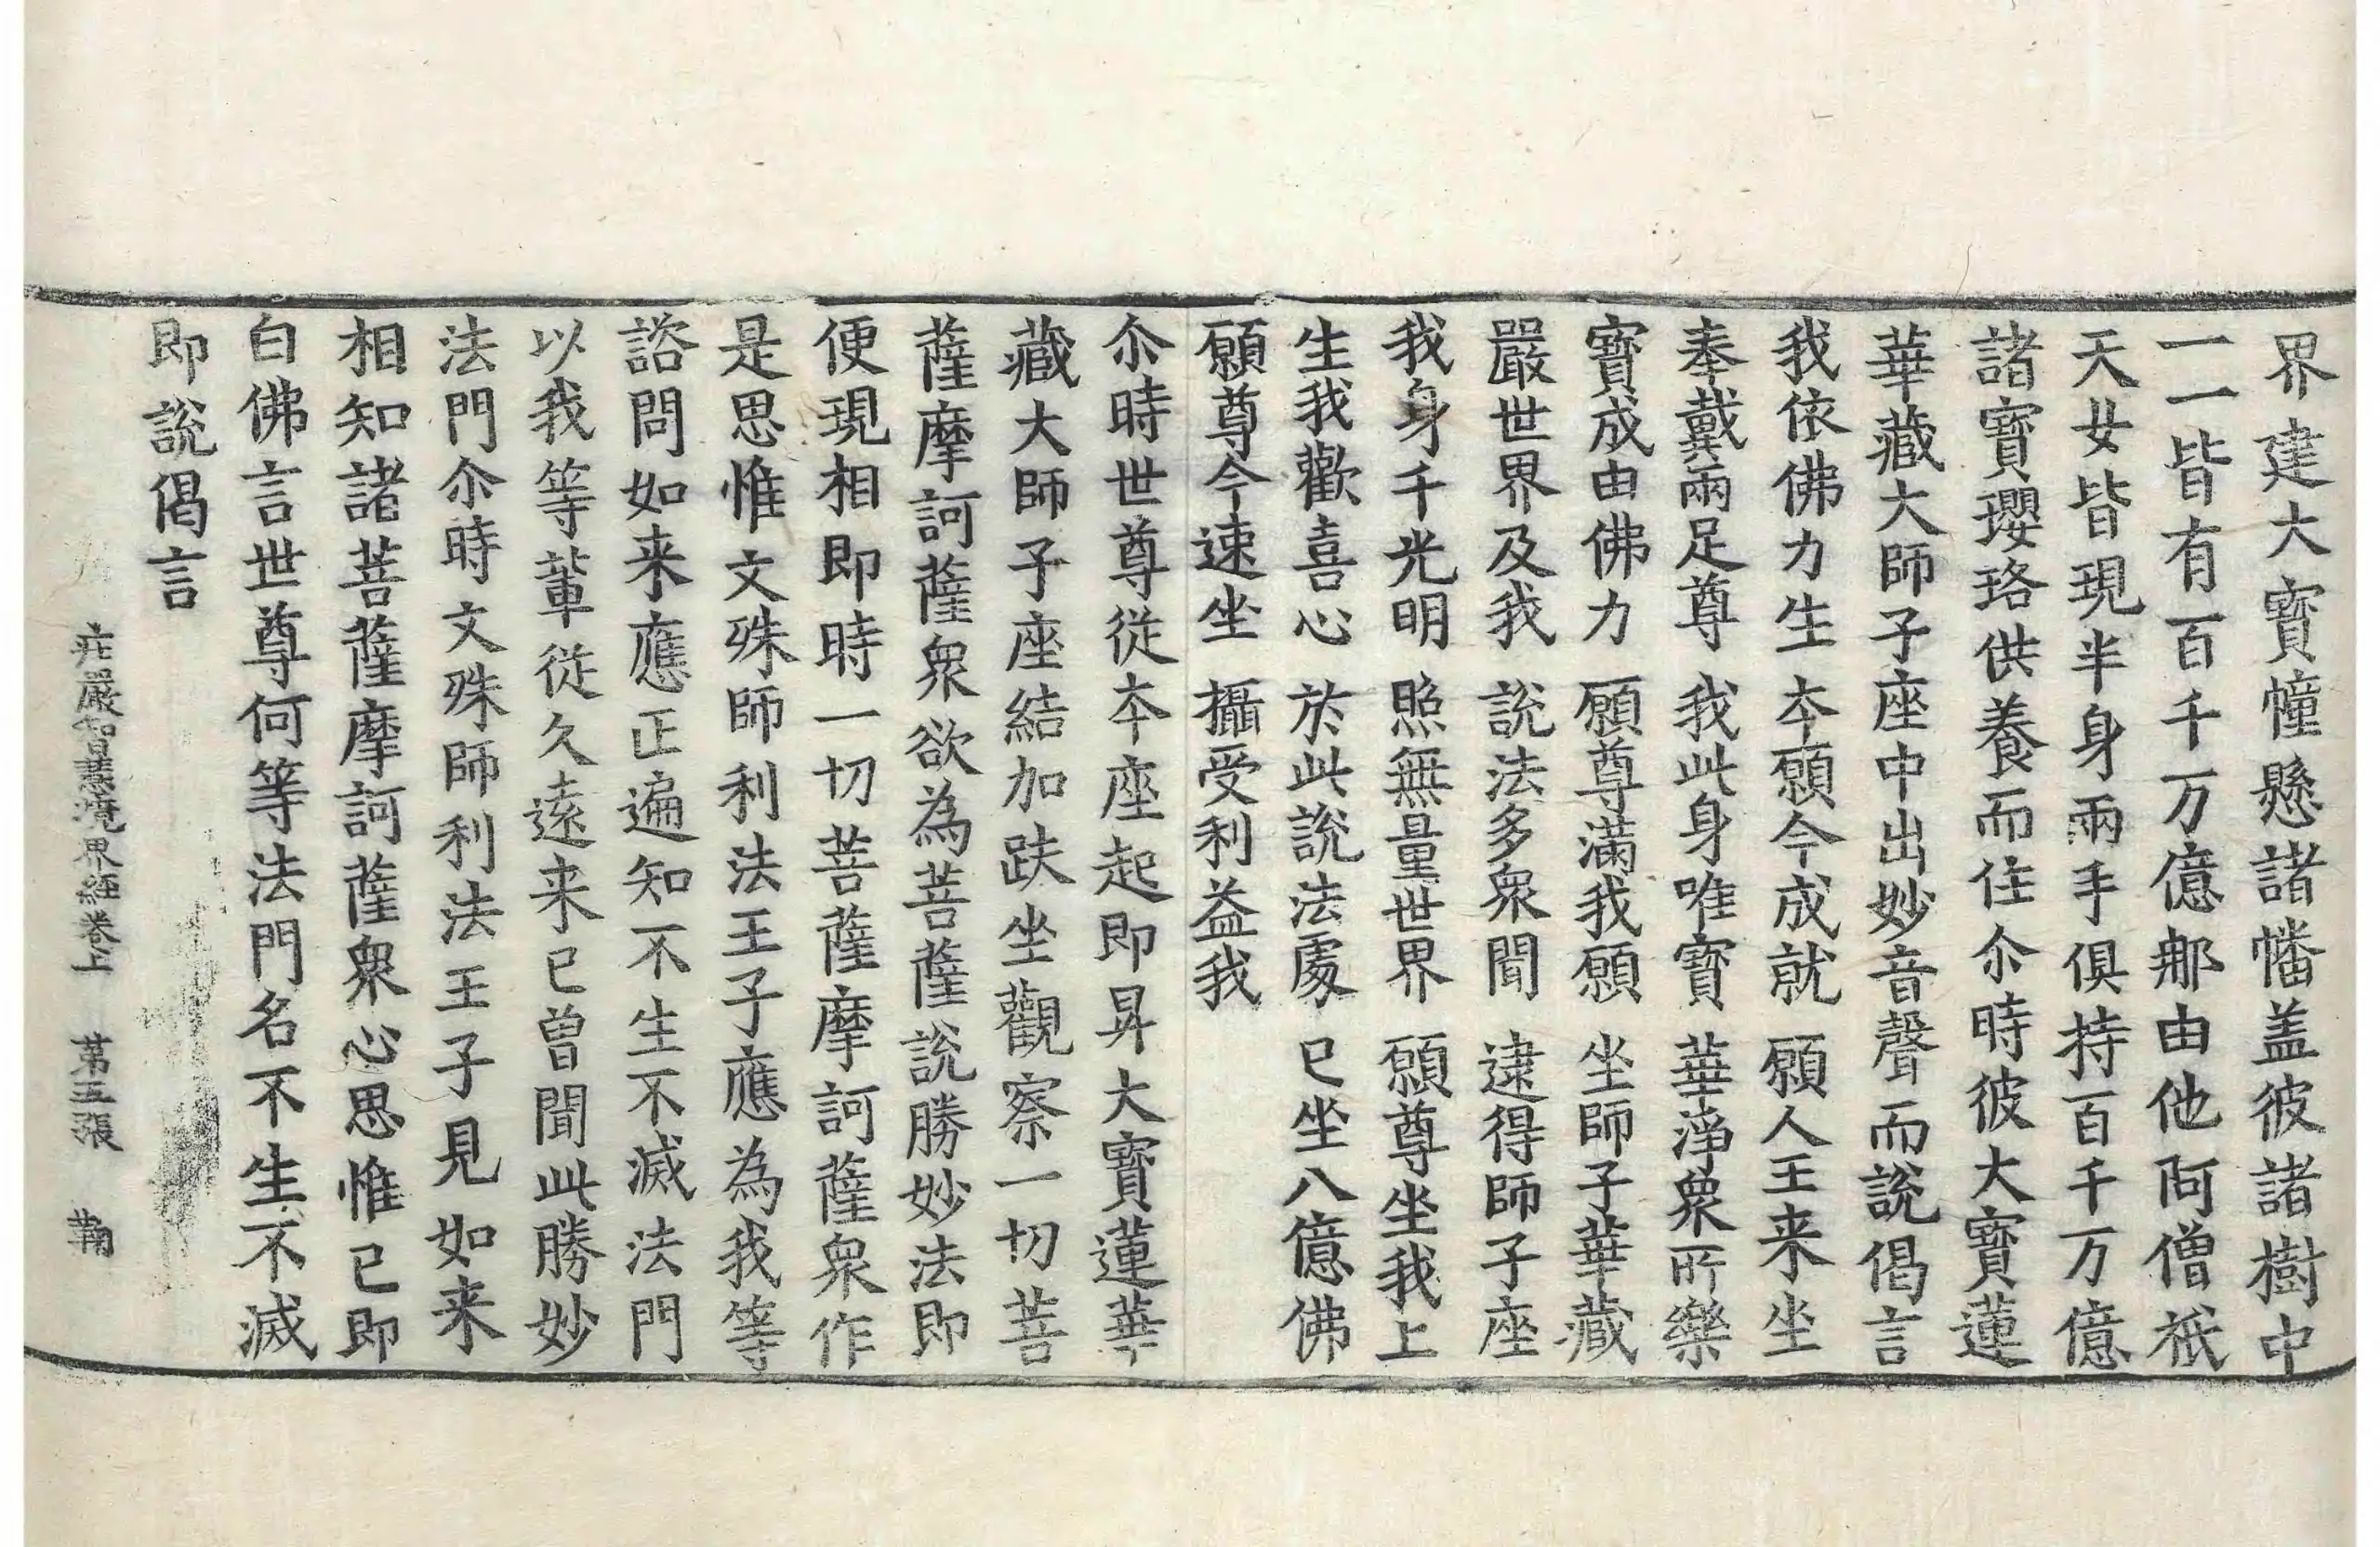 界建大寶幢懸諸幡盖彼諸樹中
一一皆有百千万億那由他阿僧祇
天女皆現半身兩手俱持百千万億
諸寶瓔珞供養而住尒時彼大寶蓮
華藏大師子座中出妙音聲而說偈言
我依佛力生　夲願今成就　願人王来坐
奉戴兩足尊　我此身唯寶　華淨衆所樂
寶成由佛力　願尊滿我願　坐師子華藏
嚴世界及我　說法多衆聞　逮得師子座
我身千光明　照無量世界　願尊坐我上
生我歡喜心　於此說法處　已坐八億佛
願尊今速坐　攝受利益我
尒時世尊從夲座起即昇大寶蓮華
藏大師子座結加趺坐觀察一切菩
薩摩訶薩衆欲為菩薩說勝妙法即
便現相即時一切菩薩摩訶薩衆作
是思惟文殊師利法王子應為我等
諮問如来應正遍知不生不滅法門
以我等輩從久遠来已曾聞此勝妙
法門尒時文殊師利法王子見如来
相知諸菩薩摩訶薩衆心思惟已即
白佛言世尊何等法門名不生不滅
即說偈言
疘嚴智慧境界經卷上　第五張